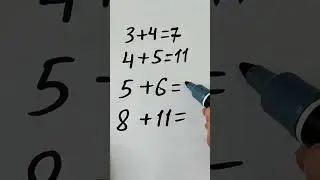 3+4=7
4+5=11
5+6=
8+11=